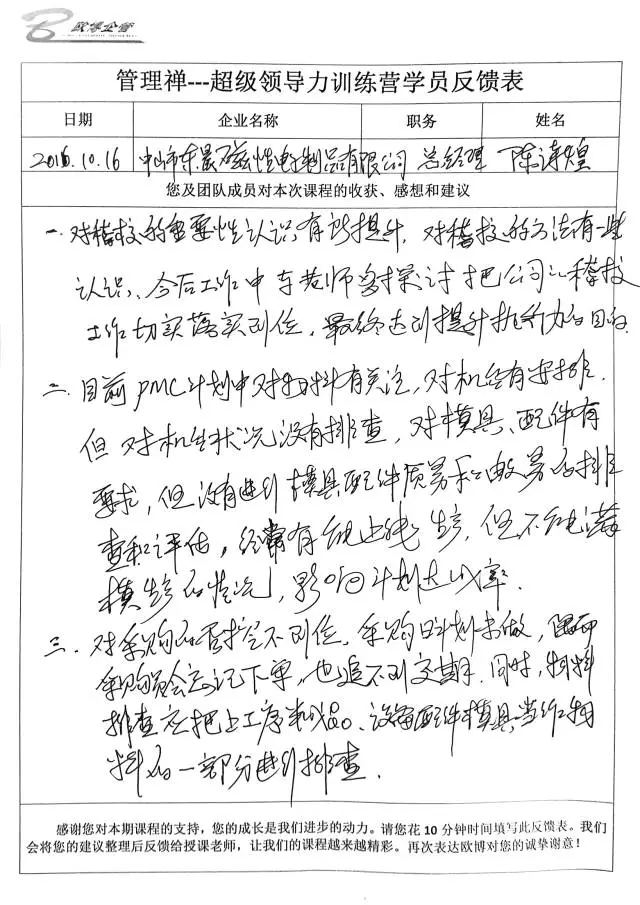 欧博企管
管理禅---超级领导力训练营学员反馈表
日期 企业名称 职务 姓名
2016.10.16 中山市东晨磁性电子制品有限公司 总经理 陈涛煌
您及团队成员对本次课程的收获、感想和建议
一、对稽核的重要性认识有所提升，对稽核的方法有一些
认识、今后工作中 老师多探讨把公司 稽核
工作切实落实到位，最终达到提升执行力的目的
二、目前PMC计划中对物料有关注，对机台有安排，
但对机台状况没有排查，对模具、配件有
要求，但没有进行模具配件质量和数量的排
查和评估，经常有能上线生产，但不能满
模生产的情况，影响计划达成率.
三、对采购的管控不到位、采购日计划未做，
采购员会忘记下单，也追不到交期.同时，物料
排查应把上工序半成品、设备配件模具当作物
料的一部分进行排查.
感谢您对本期课程的支持，您的成长是我们进步的动力。请您花 10 分钟时间填写此反馈表。我们
会将您的建议整理后反馈给授课老师，让我们的课程越来越精彩。再次表达欧博对您的诚挚谢意！